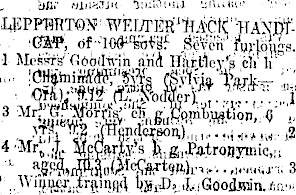 LEPPERTON WELTER HACK HANDI-
CAP, of 100 sovs. Seven furlongs.
1 Messrs Goodwin and Hartley's ch h
Chaminade, yrs (Sylvia Park—
Cta), 9.12 (L. Nodder) 1
3 Mr. G. Morris' ch g Combustion, 6
yrs, (Henderson) 2
4 Mr. J. McCarty's b g Patronymic,
aged, 10.3 (McCarten) 3
Winner trained by D. J. Goodwin.